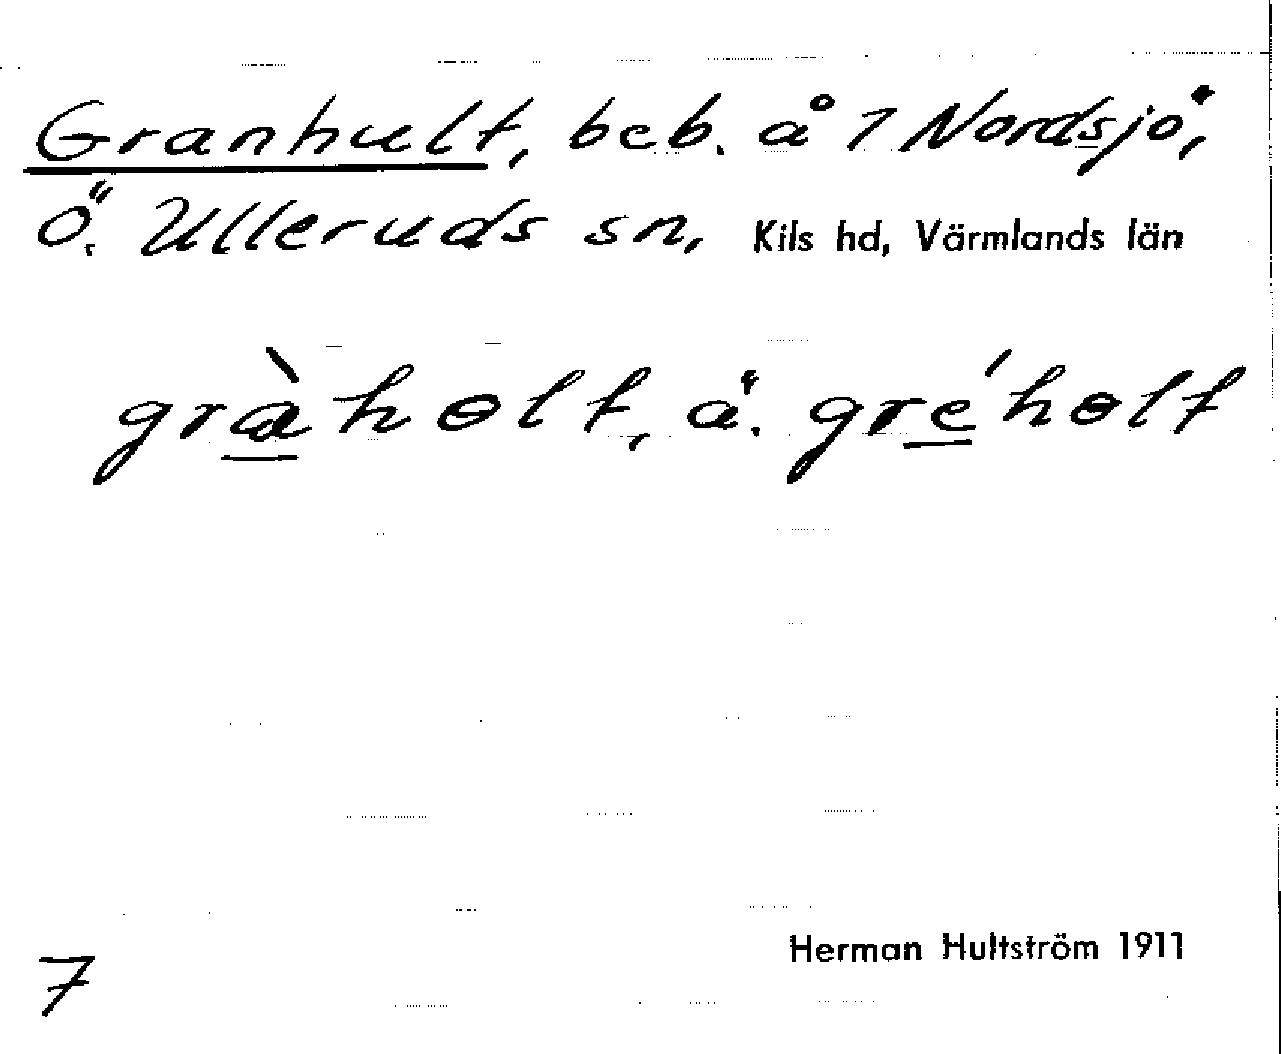 Granhult, beb. å 7 Nordsjö,
Ö. Ulleruds sn, Kils hd, Värmlands län
græ̀hɵlt, ä. gréhɵlt
Herman Hultström 1911
7